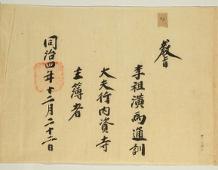 敎旨
李祖潢爲通訓
大夫行內資寺
主簿者
同治四年十二月二十三日